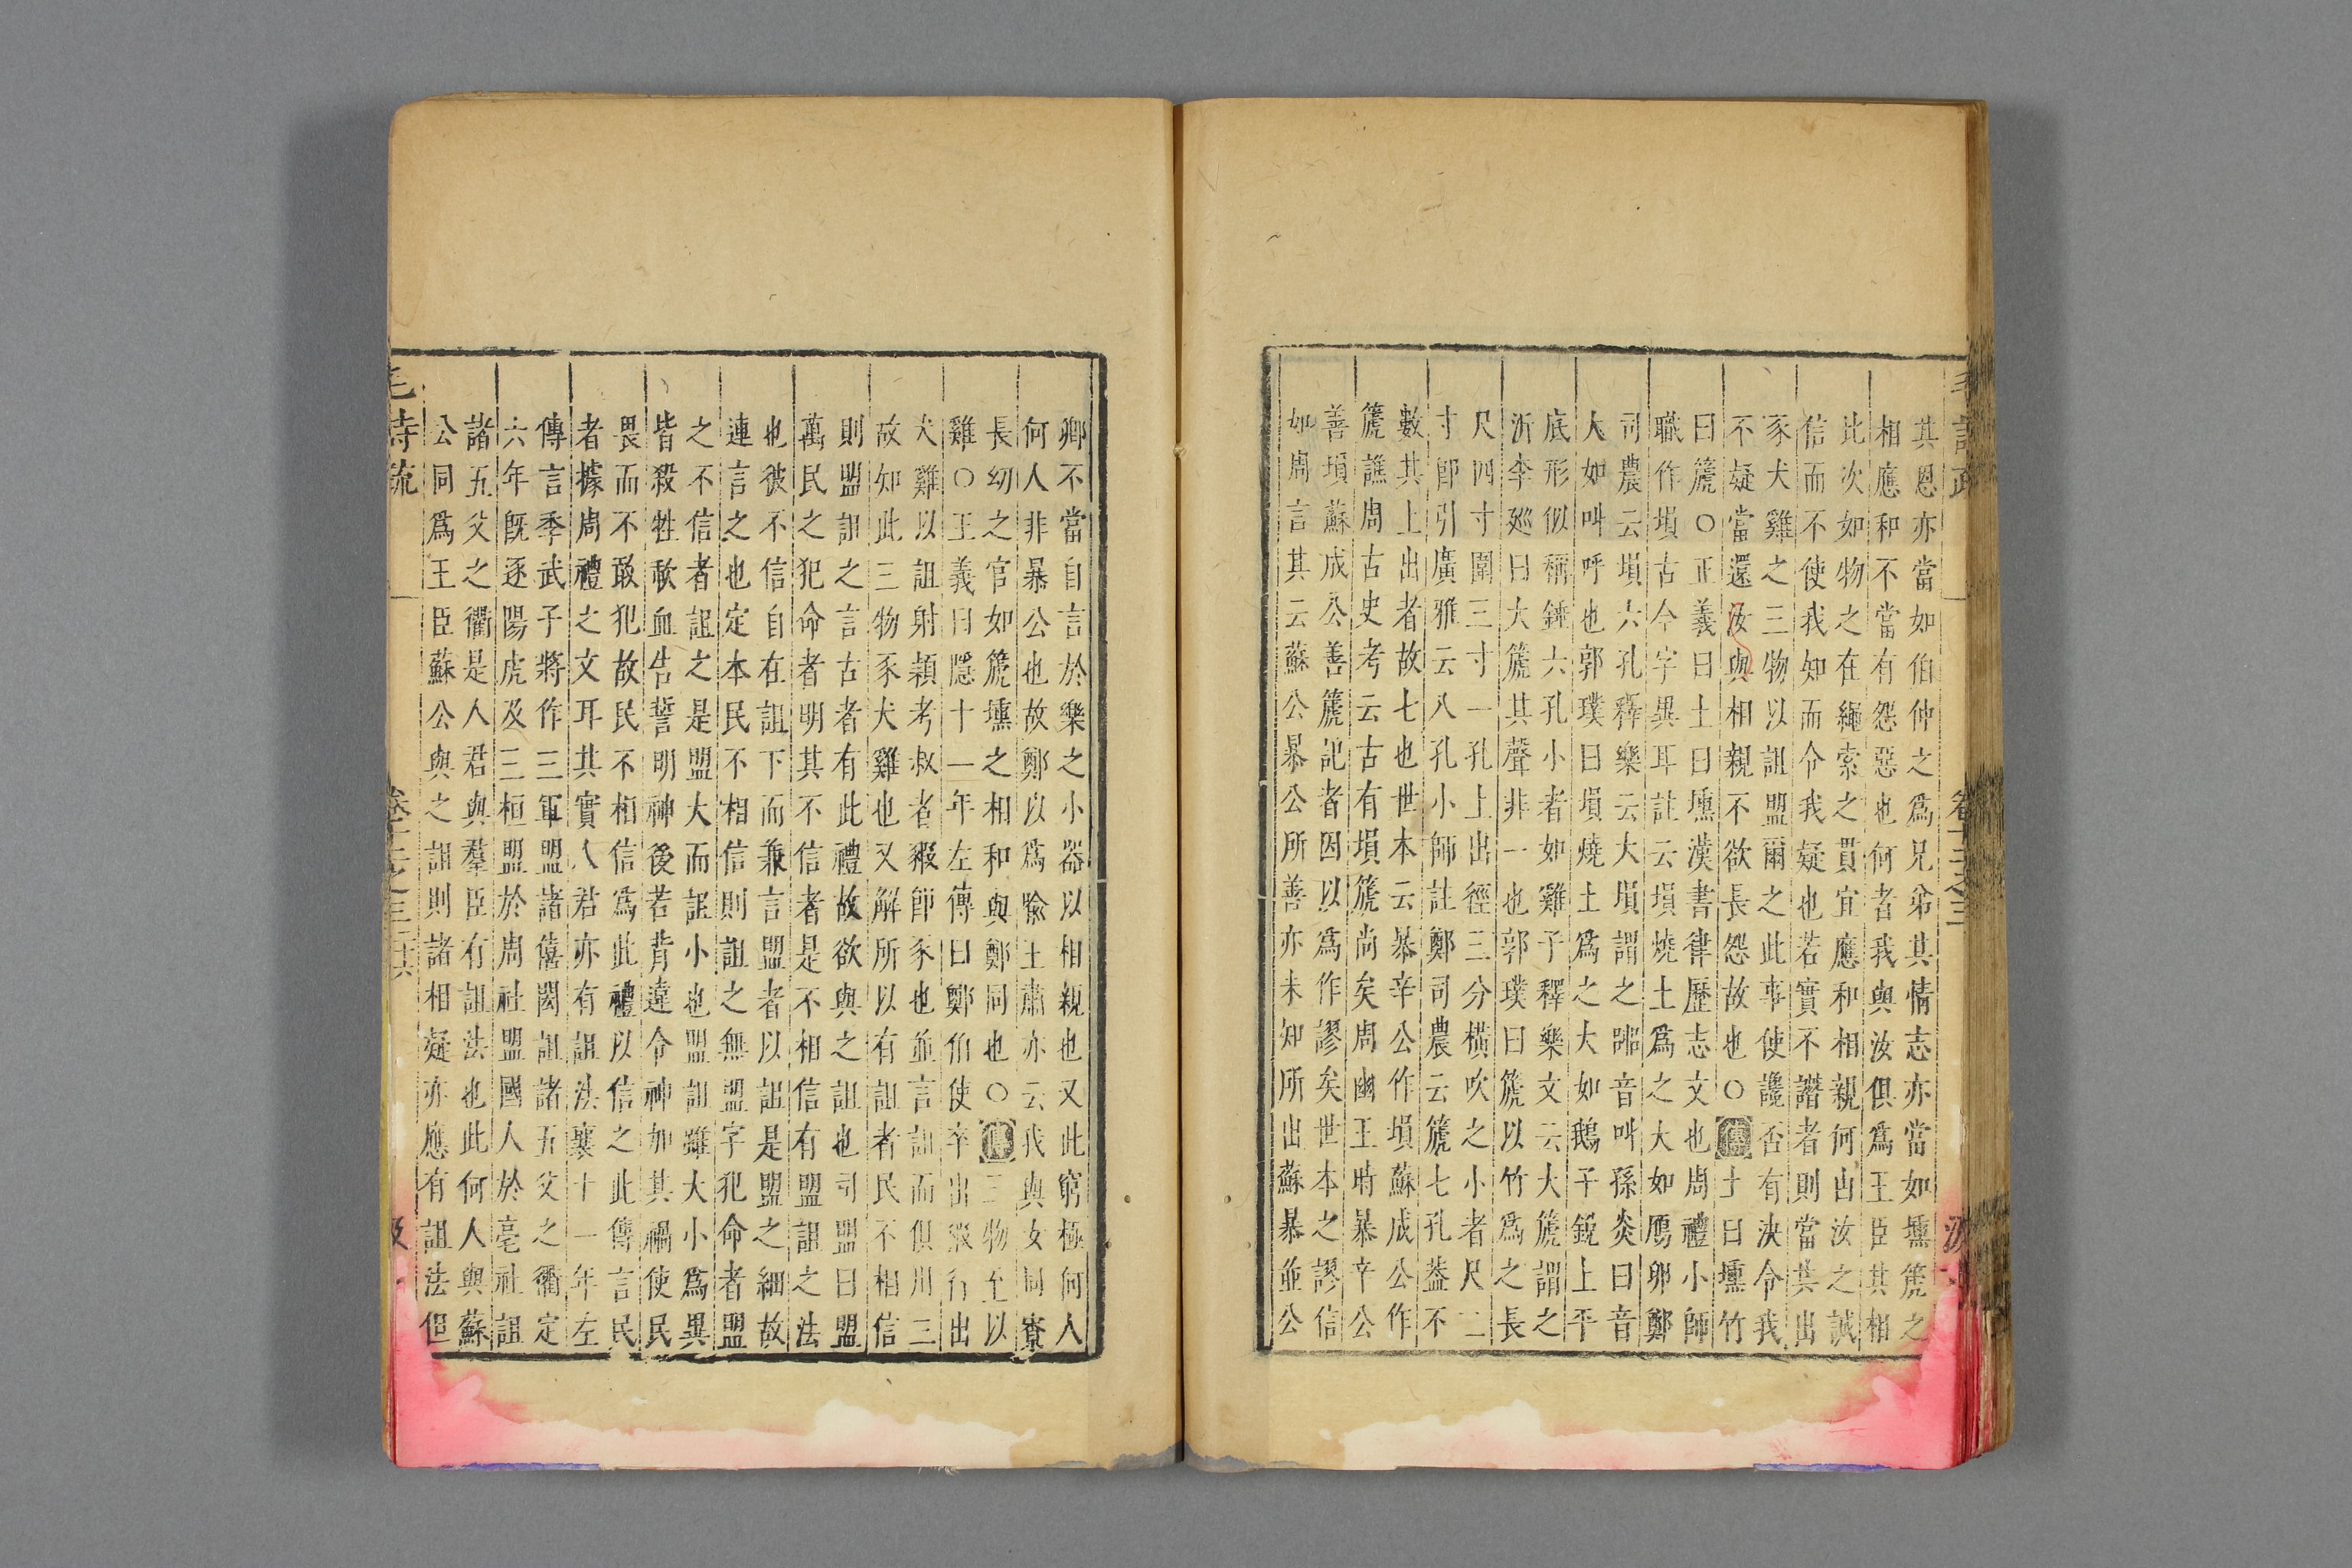 毛詩疏
卷十二之三
汲
其恩亦當如伯仲之爲兄弟其情志亦當如壎篪之
相應和不當有怨惡也何者我與汝俱爲王臣其相
比次如物之在繩索之貫宜應和相親何由汝之誠
信而不使我知而令我疑也若實不譖者則當共出
豕犬雞之三物以詛盟爾之此事使讒否有決令我
不疑當還汝與相親不欲長怨故也○傳土曰壎竹
曰篪○正義曰土曰壎漢書律歷志文也周禮小師
職作塤古今字異耳註云塤燒土爲之大如鴈卵鄭
司農云塤六孔釋樂云大塤謂之嘂音叫孫炎曰音
大如叫呼也郭璞曰塤燒土爲之大如鵝子銳上平
底形似稱錘六孔小者如雞子釋樂文云大篪謂之
沂李廵曰大篪其聲非一也郭璞曰篪以竹爲之長
尺四寸圍三寸一孔上出徑三分橫吹之小者尺二
寸卽引廣雅云八孔小師註鄭司農云篪七孔葢不
數其上出者故七也世本云暴辛公作塤蘇成公作
篪譙周古史考云古有塤篪尚矣周幽王時暴辛公
善塤蘇成公善篪記者因以爲作謬矣世本之謬信
如周言其云蘇公暴公所善亦未知所出蘇暴並公
卿不當自言於樂之小器以相親也又此窮極何人
何人非暴公也故鄭以爲喻王肅亦云我與女同寮
長幼之官如篪壎之相和與鄭同也○傳三物至以
雞○正義曰隱十一年左傳曰鄭伯使卒出豭行出
犬雞以詛射穎考叔者豭卽豕也並言詛而俱用三
故知此三物豕犬雞也又解所以有詛者民不相信
則盟詛之言古者有此禮故欲與之詛也司盟曰盟
萬民之犯命者明其不信者是不相信有盟詛之法
也彼不信自在詛下而兼言盟者以詛是盟之細故
連言之也定本民不相信則詛之無盟字犯命者盟
之不信者詛之是盟大而詛小也盟詛雖大小爲異
皆殺牲歃血告誓明神後若背違令神加其禍使民
畏而不敢犯故民不相信爲此禮以信之此傳言民
者據周禮之文耳其實人君亦有詛法襄十一年左
傳言季武子將作三軍盟諸僖閎詛諸五父之衢定
六年旣逐陽虎及三桓盟於周社盟國人於亳社詛
諸五父之衢是人君與羣臣有詛法也此何人與蘇
公同爲王臣蘇公與之詛則諸相疑亦應有詛法但
毛詩疏
卷十二之三